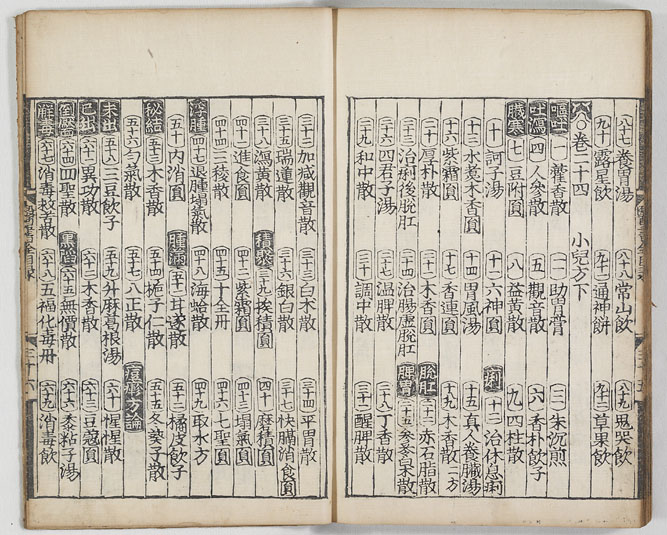 八十七 養胃湯 八十八 常山飲 八十九 鬼哭飲
九十 露星飲 九十一 通神餅 九十二 草果飲
八 卷二十四 小兒方下
嘔吐 一 藿香散 二 助胃膏 三 朱沉煎
吐瀉 四 人參散 五 觀音散 六 香朴飲子
臟寒 七 豆附圓 八 益黃散 九 四柱散
十 訶子湯 十一 六神圓 痢 十二 治休息痢
十三 水煮木香圓 十四 胃風湯 十五 真人養臟湯
十六 紫霜圓 十七 香連圓 十九 木香散二方
二十 厚朴散 二十一 木香圓 脫肛 二十二 赤石脂散
二十三 治痢後脫肛 二十四 治腸虛脫肛 脾胃 二十五 散
二十六 四君子湯 二十七 溫脾散 二十八 丁香散
二十九 和中散 三十 調中散 三十一 醒脾散
三十二 加減觀音散 三十三 白朮散 三十四 平胃散
三十五 瑞蓮散 三十六 銀白散 三十七 快膈消食圓
三十八 瀉黃散 積聚 三十九 挨積圓 四十 磨積圓
四十一 進食圓 四十二 紫霜圓 四十三 塌氣圓
四十四 三稜散 四十五 十全丹 四十六 七聖圓
浮腫 四十七 退腫塌氣散 四十八 海蛤散 四十九 取水方
五十 內消圓 腫滿 五十一 甘遂散 五十二 橘皮飲子
秘結 五十三 木香散 五十四 梔子仁散 五十五 冬葵子散
五十六 勻氣散 五十七 八正散 瘡疹方論
未出 五十八 三豆飲子 五十九 升麻葛根湯 六十 惺惺散
已出 六十一 異功散 六十二 木香散 六十三 豆蔻圓
倒靨 六十四 四聖散 黑陷 六十五 無價散 六十六 黍粘子湯
六十七 消毒散 六十八 五福化毒丹 六十九 消毒飲